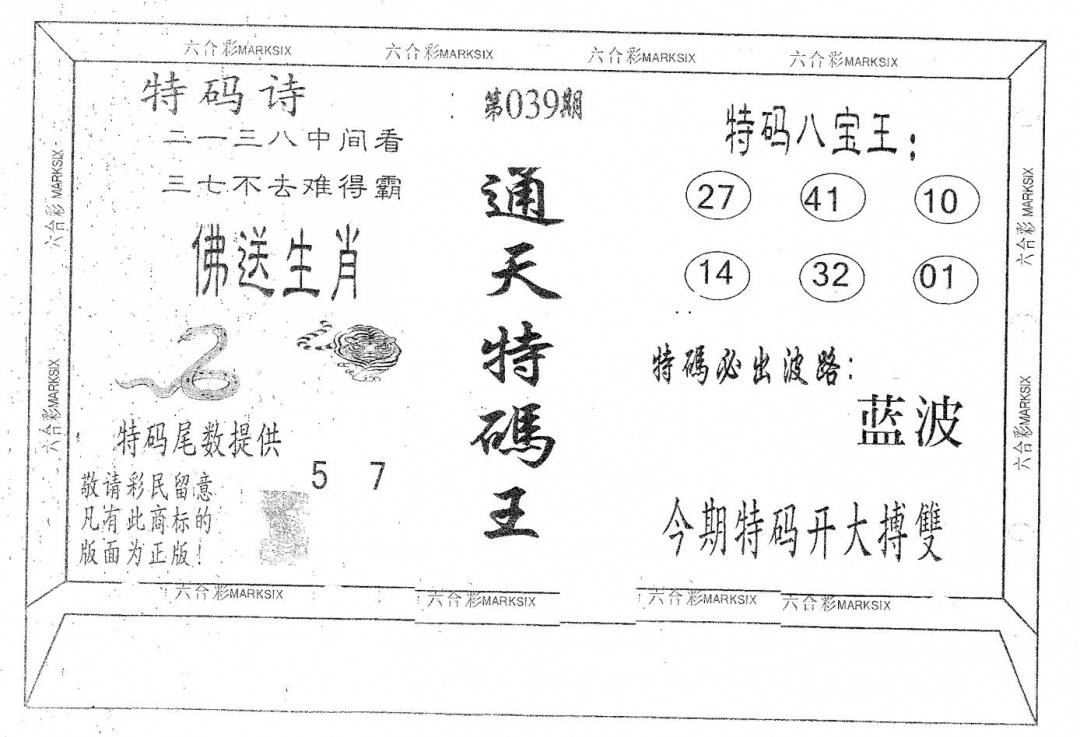 六合彩MARKSIX 六合彩MARKSIX 六合彩MARKSIX 六合彩MARKSIX
特码诗
二一三八中间看
三七不去难得霸
佛送生肖
特码尾数提供
5 7
敬请彩民留意
凡有此商标的
版面为正版!
第039期
通天特碼王
特码八宝王:
27 41 10
14 32 01
特碼必出波路:
蓝波
今期特码开大搏雙
六合彩MARKSIX
六合彩MARKSIX
六合彩MARKSIX
六合彩MARKSIX
六合彩MARKSIX 六合彩MARKSIX 六合彩MARKSIX 六合彩MARKSIX